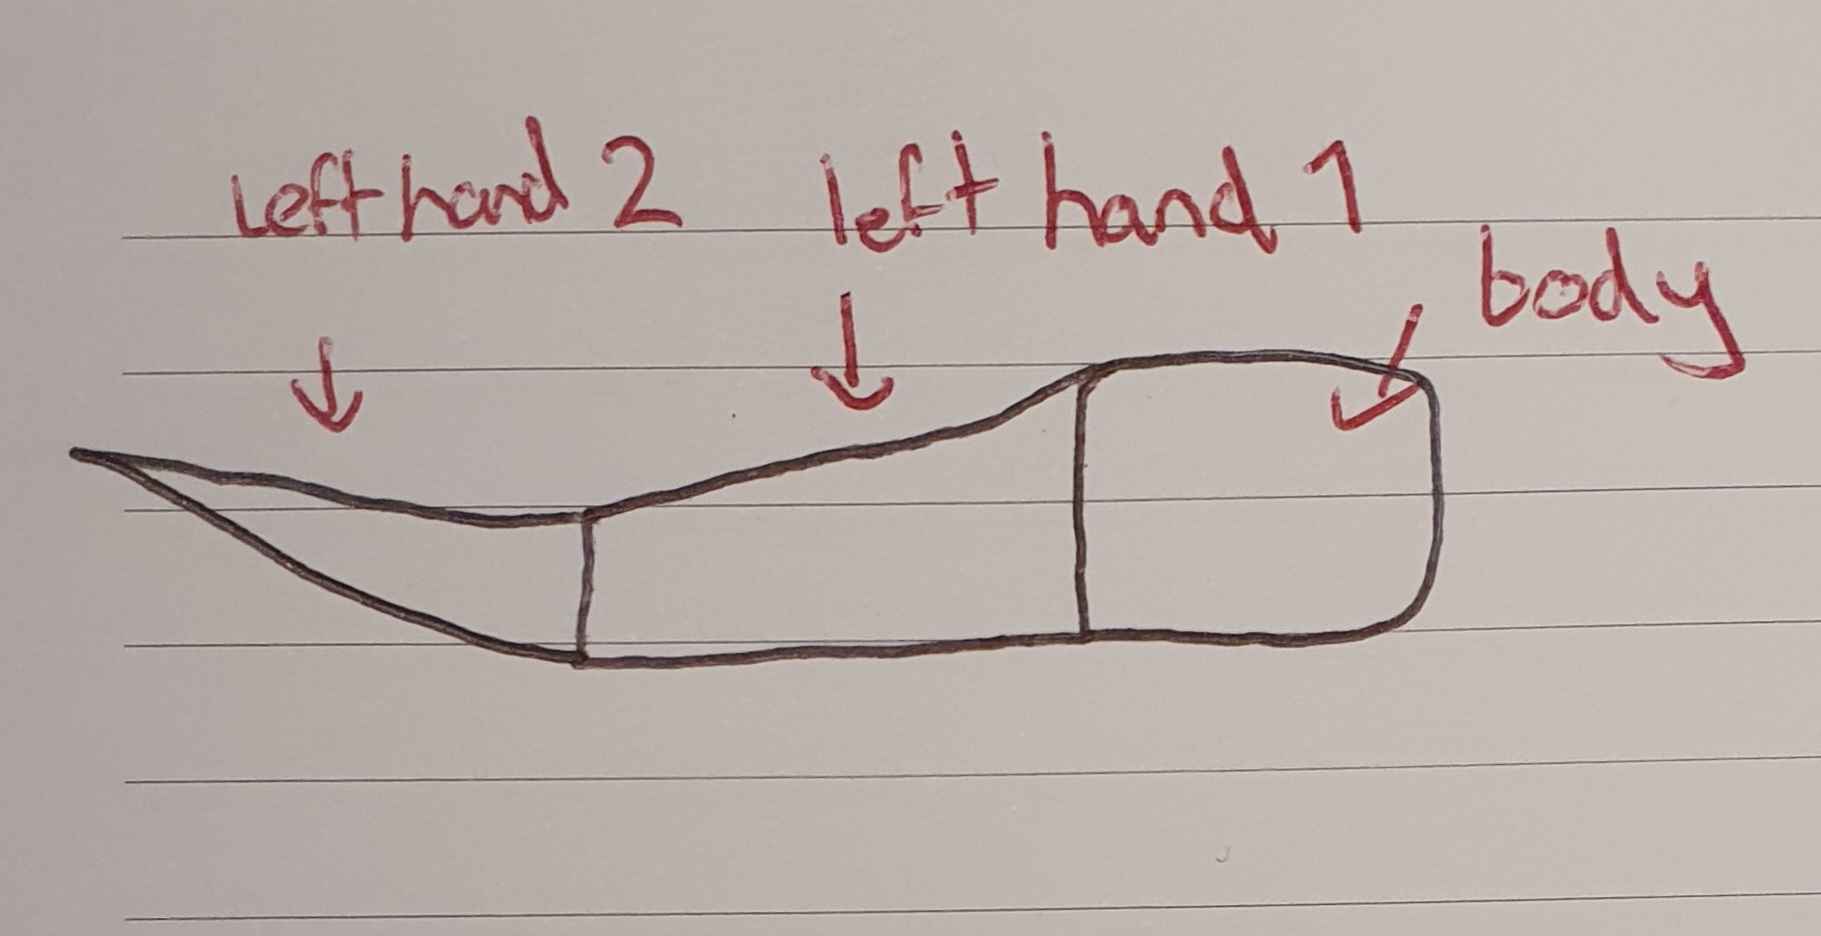 Left hand 2
left hand 1
body